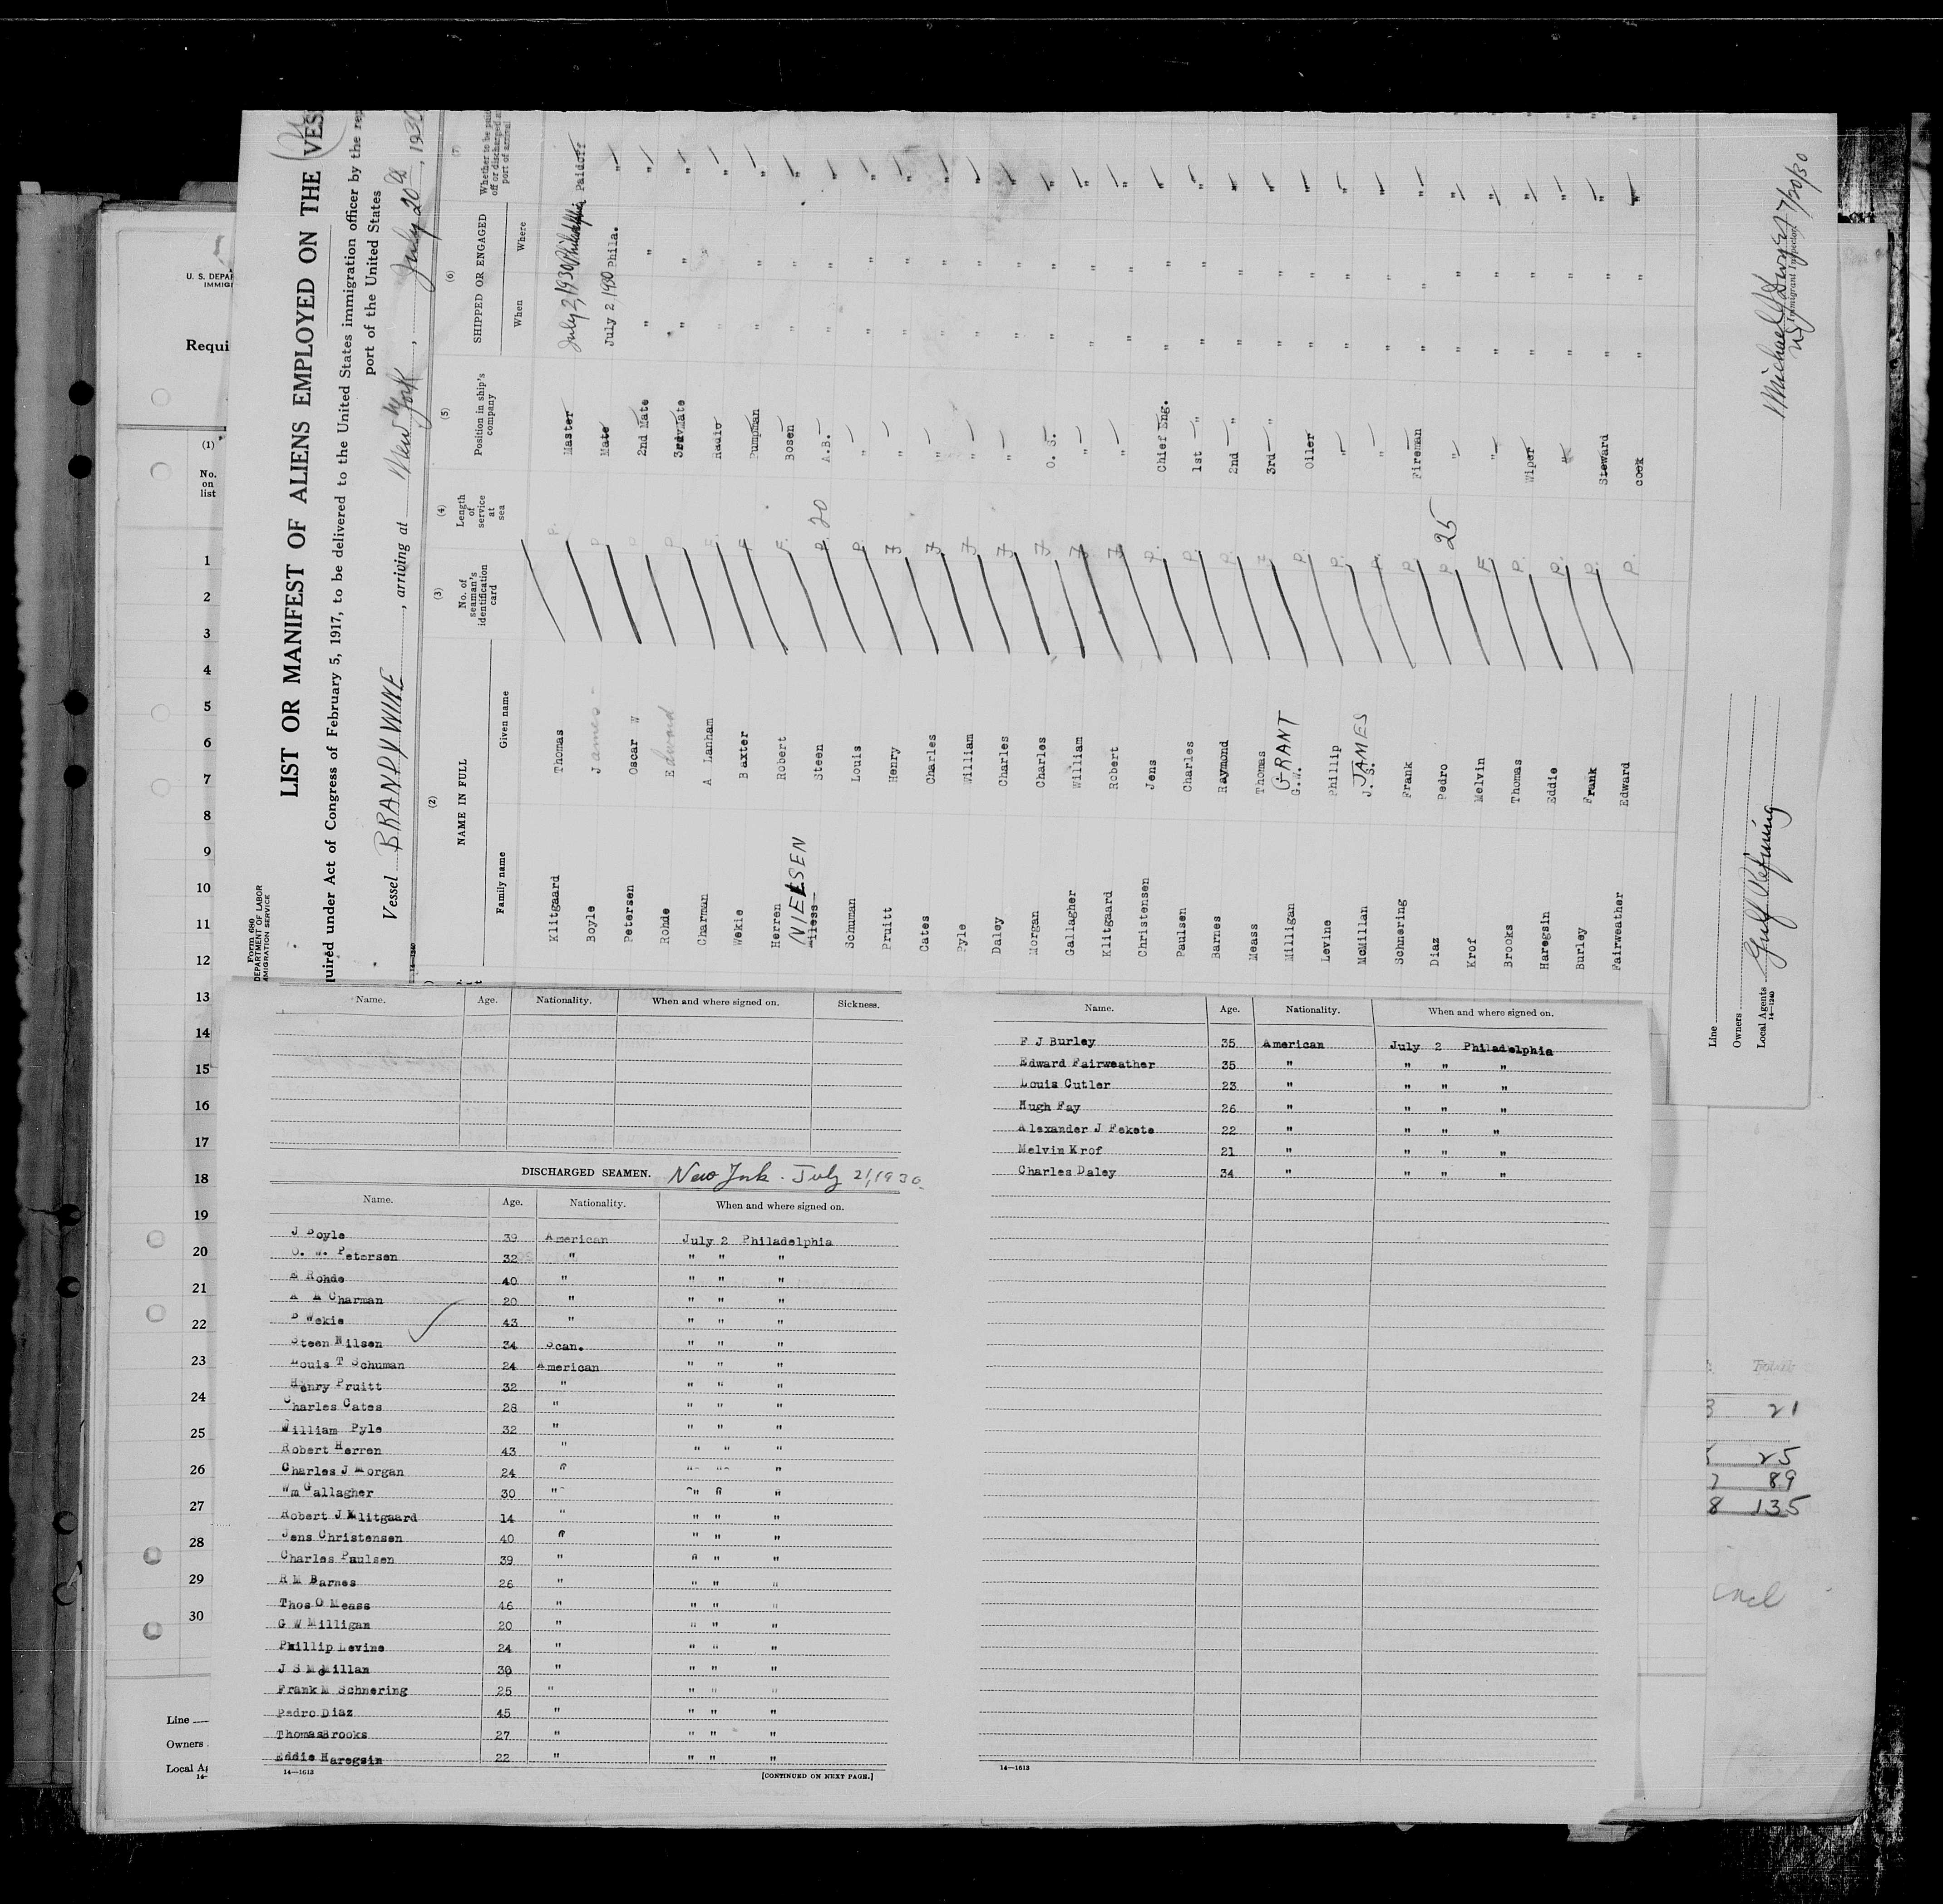 Form 680
DEPARTMENT OF LABOR
IMMIGRATION SERVICE
LIST OR MANIFEST OF ALIENS EMPLOYED ON THE VES
quired under Act of Congress of February 5, 1917, to be delivered to the United States immigration officer by the rep
port of the United States
Vessel BRANDYWINE, arriving at New York, July 20th, 1930
(2) (3) (4) (5) (6) (7)
NAME IN FULL
Family name Given name
No. of seaman's identification card
Length of service at sea
Position in ship's company
SHIPPED OR ENGAGED
When Where
Whether to be paid off or discharged at port of arrival
Klitgaard Thomas P. Master July 2, 1930 Philadelphia Paidoff
Boyle James P Mate July 2 1930 Phila. "
Petersen Oscar W P 2nd Mate " " "
Rohde Edward P 3rd Mate " " "
Charman A Lanham Radio " " "
Wekie Baxter Pumpman " " "
Herren Robert F. Bosen " " "
NIELSEN Steen P. 20 A.B. " " "
Schuman Louis P. " " " "
Pruitt Henry 7 " " " "
Cates Charles 7 " " " "
Pyle William 7 " " " "
Daley Charles 7 " " " "
Morgan Charles 7 O. S. " " "
Gallagher William 7 " " " "
Klitgaard Robert 7 " " " "
Christensen Jens P. Chief Eng. " " "
Paulsen Charles P. 1st " " " "
Barnes Raymond P. 2nd " " " "
Meass Thomas 3rd " " " "
Milligan G.W. GRANT P. Oiler " " "
Levine Phillip P. " " " "
McMillan J. S. JAMES P. " " " "
Schnering Frank P Fireman " " "
Diaz Pedro P. 25 " " " "
Krof Melvin F " " " "
Brooks Thomas P. Wiper " " "
Haregsin Eddie P. " " " "
Burley Frank P. Steward " " "
Fairweather Edward P. cook " " "
Line
Owners
Local Agents Gulf Refining
14-1240
Immigrant Inspector 7/20/30
U. S. DEPAR
IMMIGR
Requi
(1)
No.
on
list
1
2
3
4
5
6
7
8
9
10
11
12
13
14
15
16
17
18
19
20
21
22
23
24
25
26
27
28
29
30
Line
Owners
Local A
14-
Name. Age. Nationality. When and where signed on. Sickness.
DISCHARGED SEAMEN. New York. July 21, 1930.
Name. Age. Nationality. When and where signed on.
J Boyle 39 American July 2 Philadelphia
O. W. Petersen 32 " " " "
E Rohde 40 " " " "
A A Charman 20 " " " "
B Wekie 43 " " " "
Steen Nilsen 34 Scan. " " "
Louis T Schuman 24 American " " "
Henry Pruitt 32 " " " "
Charles Cates 28 " " " "
William Pyle 32 " " " "
Robert Herren 43 " " " "
Charles J Morgan 24 " " " "
Wm Gallagher 30 " " " "
Robert J Klitgaard 14 " " " "
Jens Christensen 40 " " " "
Charles Paulsen 39 " " " "
R M Barnes 26 " " " "
Thos O Meass 46 " " " "
G W Milligan 20 " " " "
Phillip Levine 24 " " " "
J S McMillan 30 " " " "
Frank M Schnering 25 " " " "
Pedro Diaz 45 " " " "
Thomas Brooks 27 " " " "
Eddie Haregsin 22 " " " "
14-1613 [CONTINUED ON NEXT PAGE.]
Name. Age. Nationality. When and where signed on.
F J Burley 35 American July 2 Philadelphia
Edward Fairweather 35 " " " "
Louis Cutler 23 " " " "
Hugh Fay 26 " " " "
Alexander J Fekete 22 " " " "
Melvin Krof 21 " " " "
Charles Daley 34 " " " "
14-1613
Total
21
25
89
8 135
incl